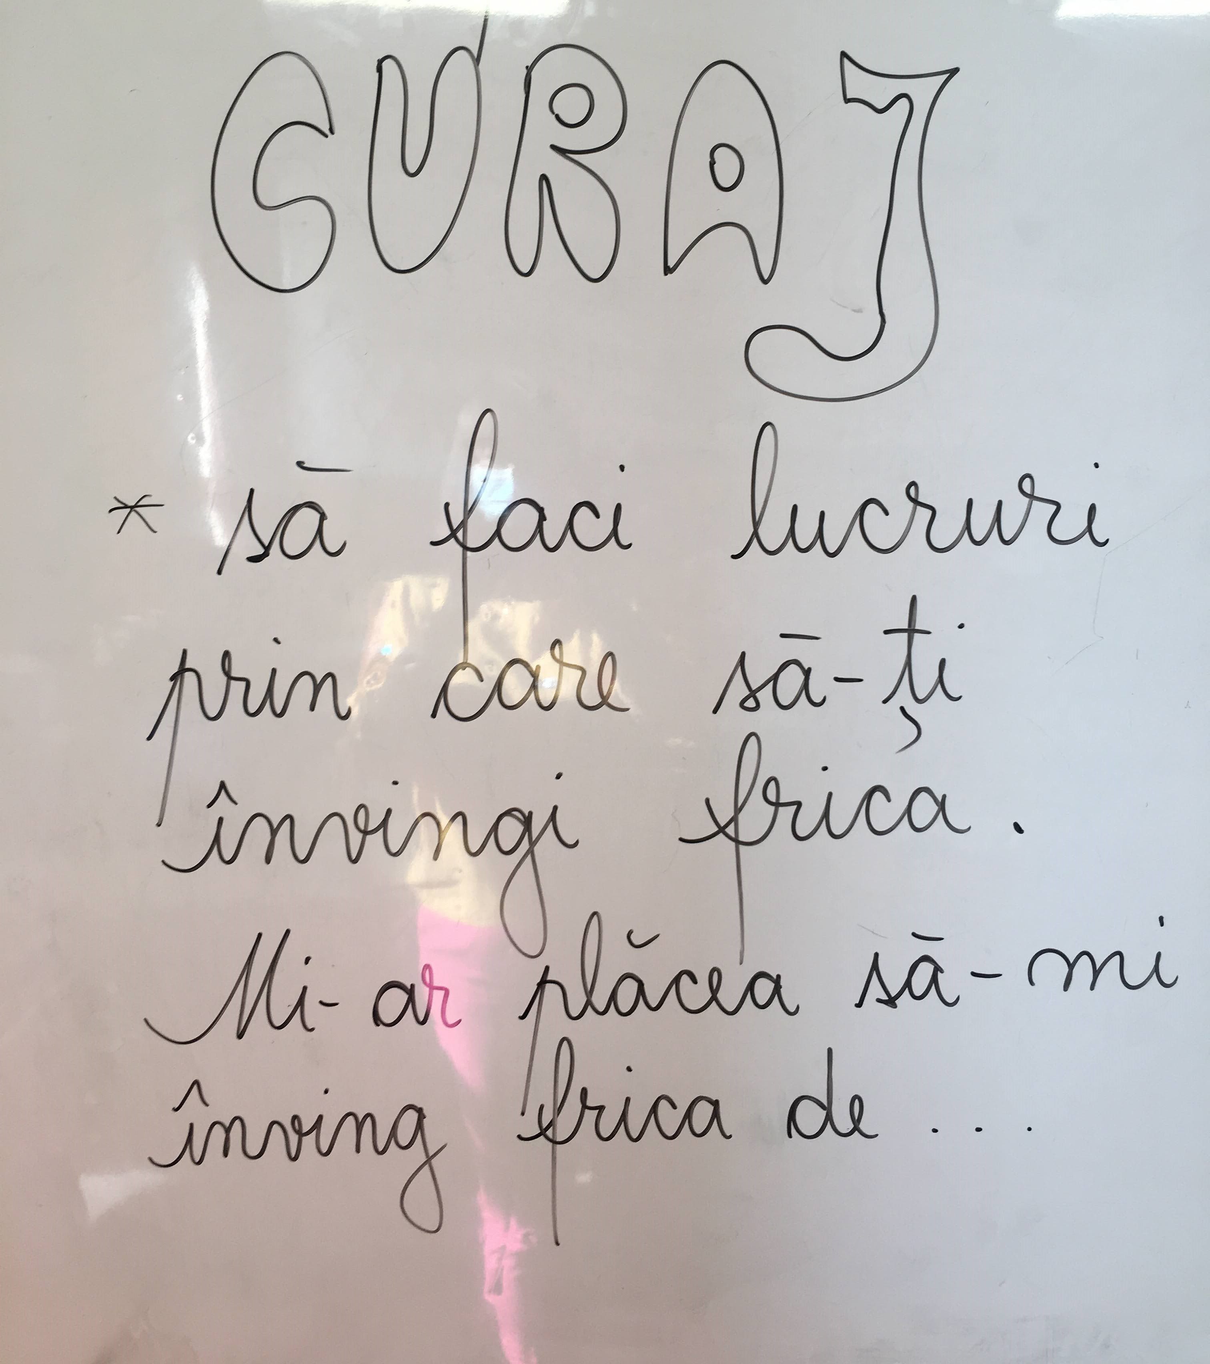 CURAJ
* să faci lucruri
prin care să-ți
învingi frica.
Mi-ar plăcea să-mi
înving frica de ...